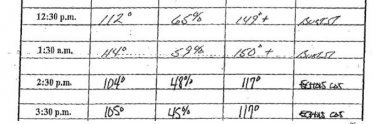 12:30 p.m. 112° 65% 149°+
1:30 a.m. 114° 59% 150°+
2:30 p.m. 104° 48% 117°
3:30 p.m. 105° 45% 117°